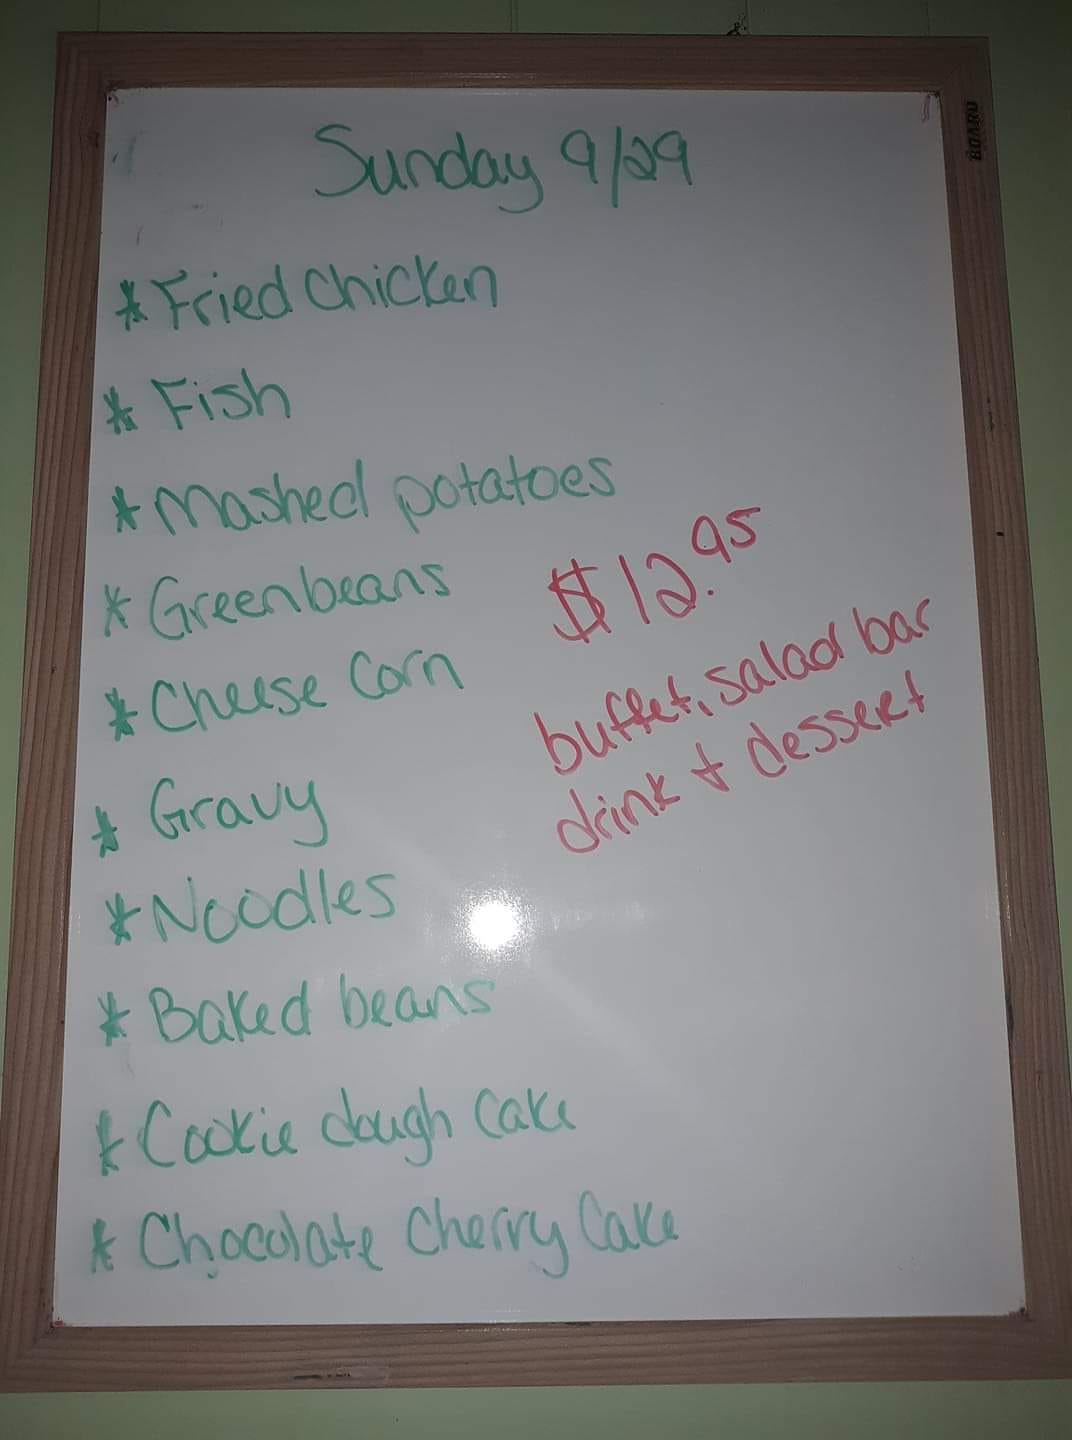 Sunday 9/29
* Fried Chicken
* Fish
* Mashed potatoes
* Greenbeans
* Cheese Corn
* Gravy
* Noodles
* Baked beans
* Cookie dough Cake
* Chocolate Cherry Cake
$12.95
buffet, salad bar
drink & dessert
BOARD